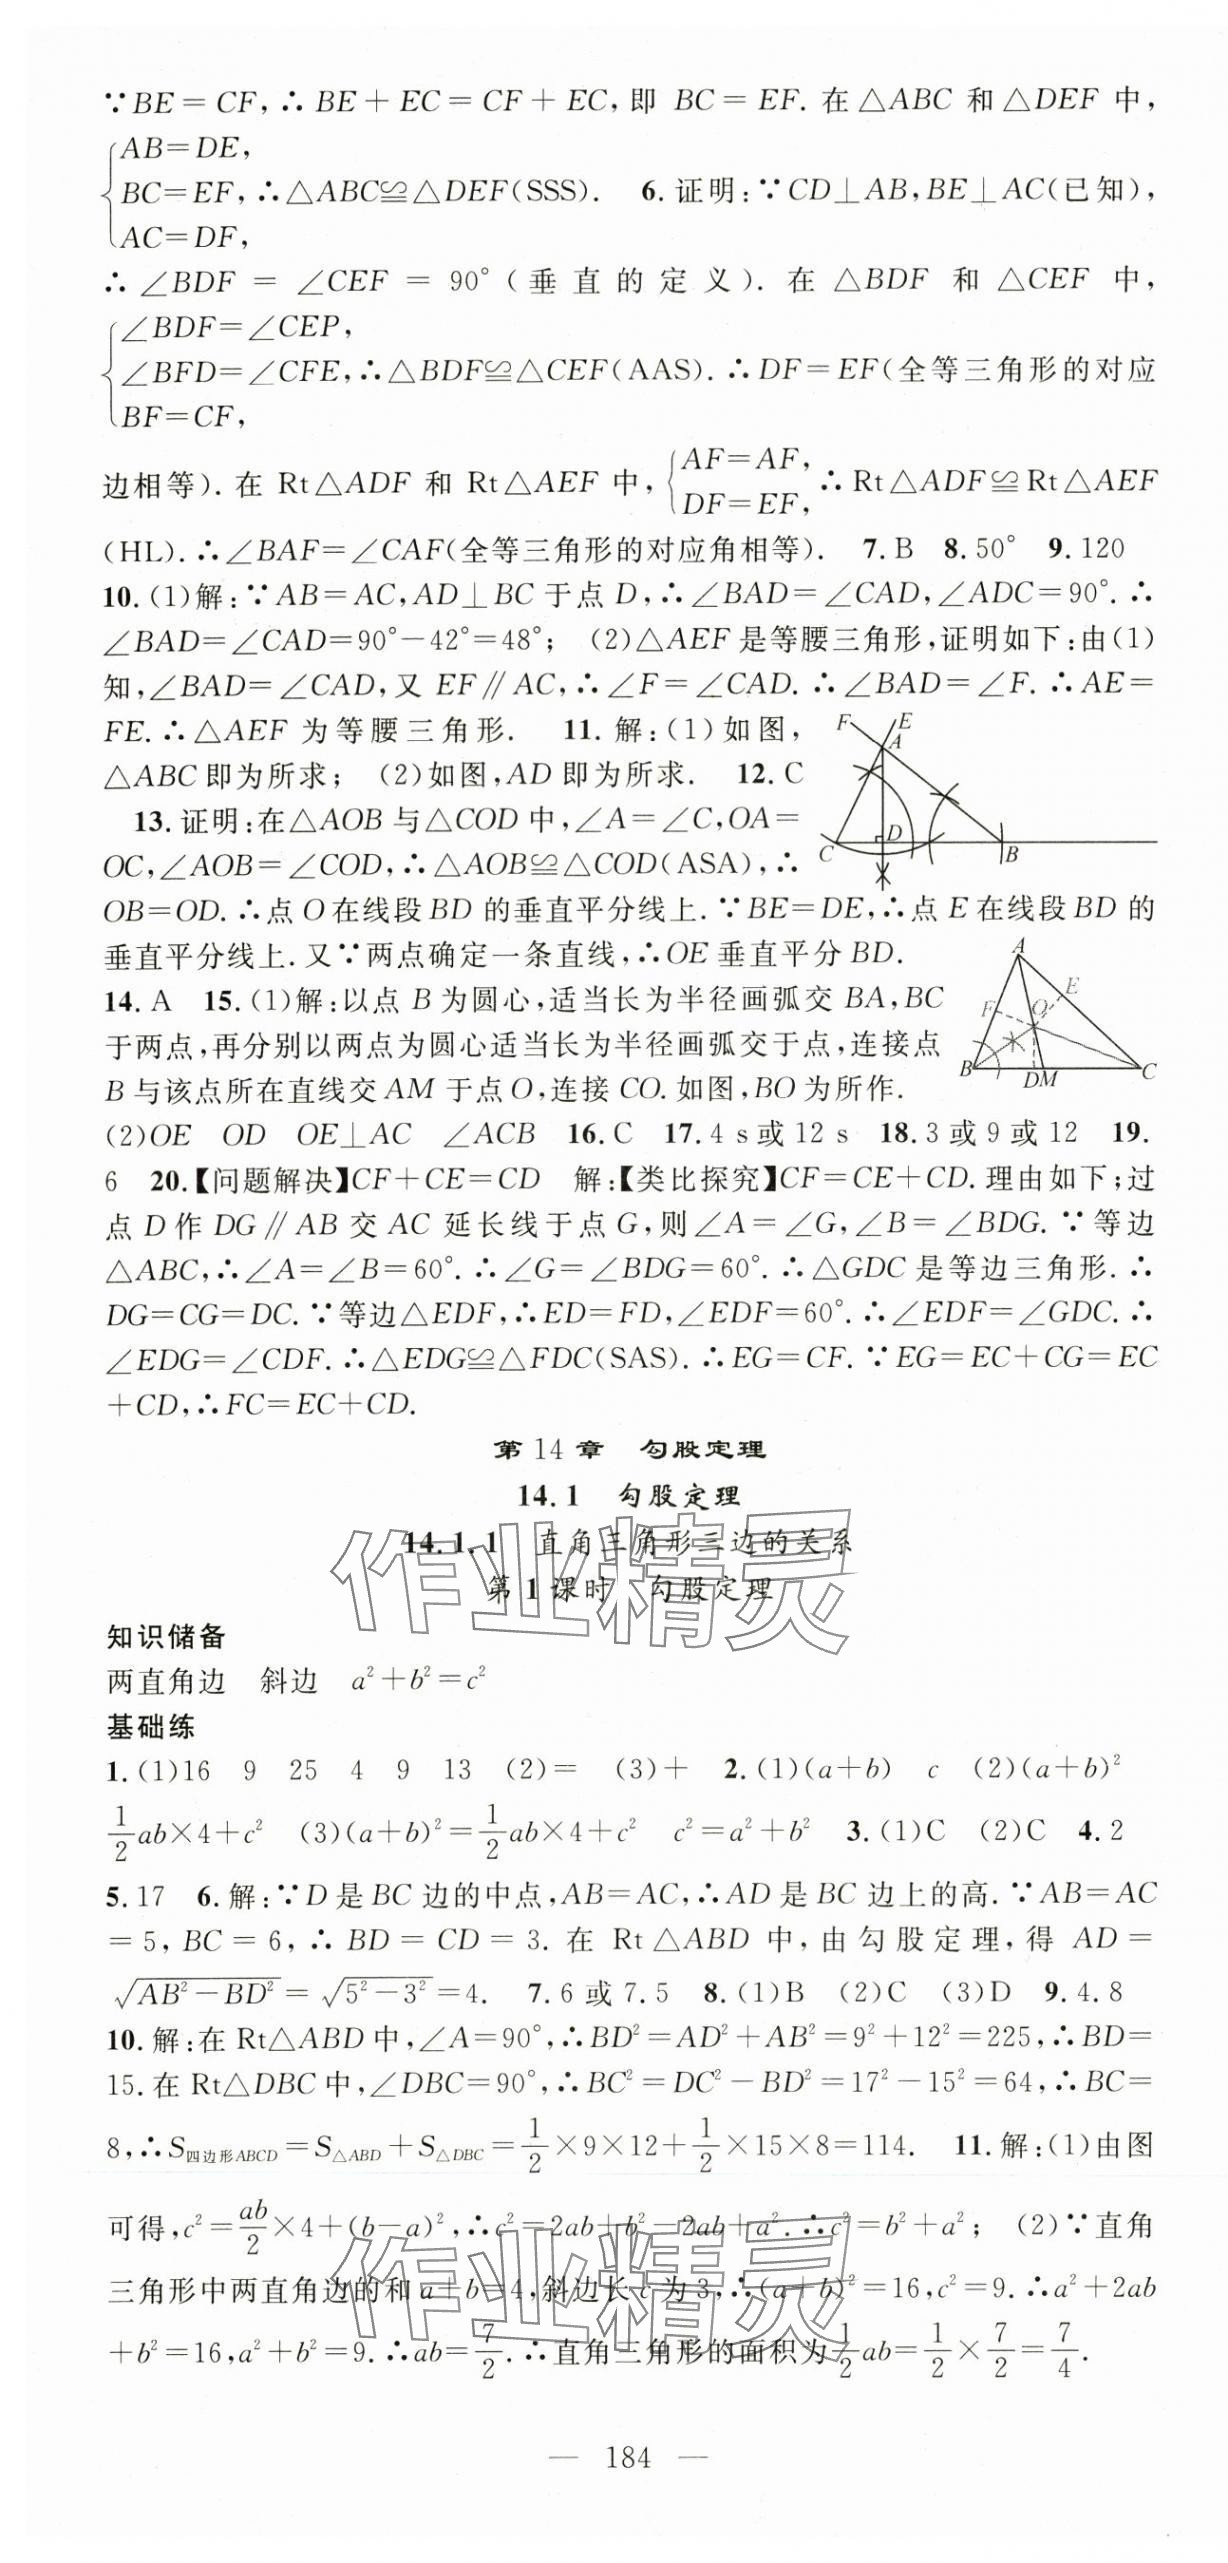 ∵BE=CF,∴BE+EC=CF+EC,即 BC=EF.在△ABC 和△DEF 中,
AB=DE,
BC=EF,∴△ABC≌△DEF(SSS). 6.证明:∵CD⊥AB,BE⊥AC(已知),
AC=DF,
∴∠BDF=∠CEF=90°(垂直的定义).在△BDF 和△CEF 中,
∠BDF=∠CEP,
∠BFD=∠CFE,∴△BDF≌△CEF(AAS).∴DF=EF(全等三角形的对应
BF=CF,
边相等).在 Rt△ADF 和 Rt△AEF 中,{AF=AF, DF=EF,∴Rt△ADF≌Rt△AEF
(HL).∴∠BAF=∠CAF(全等三角形的对应角相等). 7.B 8.50° 9.120
10.(1)解:∵AB=AC,AD⊥BC于点D,∴∠BAD=∠CAD,∠ADC=90°.∴
∠BAD=∠CAD=90°-42°=48°; (2)△AEF是等腰三角形,证明如下:由(1)
知,∠BAD=∠CAD,又 EF∥AC,∴∠F=∠CAD.∴∠BAD=∠F.∴AE=
FE.∴△AEF 为等腰三角形. 11.解:(1)如图,
△ABC即为所求; (2)如图,AD即为所求. 12.C
13.证明:在△AOB与△COD中,∠A=∠C,OA=
OC,∠AOB=∠COD,∴△AOB≌△COD(ASA),∴
F E A C D B
OB=OD.∴点O在线段BD的垂直平分线上.∵BE=DE,∴点E在线段BD的
垂直平分线上.又∵两点确定一条直线,∴OE垂直平分BD.
14.A 15.(1)解:以点B为圆心,适当长为半径画弧交BA,BC
于两点,再分别以两点为圆心适当长为半径画弧交于点,连接点
B与该点所在直线交AM于点O,连接CO.如图,BO为所作.
A E F O B D M C
(2)OE OD OE⊥AC ∠ACB 16.C 17.4 s或12 s 18.3或9或12 19.
6 20.【问题解决】CF+CE=CD 解:【类比探究】CF=CE+CD.理由如下;过
点D作DG∥AB交AC延长线于点G,则∠A=∠G,∠B=∠BDG.∵等边
△ABC,∴∠A=∠B=60°.∴∠G=∠BDG=60°.∴△GDC是等边三角形.∴
DG=CG=DC.∵等边△EDF,∴ED=FD,∠EDF=60°.∴∠EDF=∠GDC.∴
∠EDG=∠CDF.∴△EDG≌△FDC(SAS).∴EG=CF.∵EG=EC+CG=EC
+CD,∴FC=EC+CD.
第14章 勾股定理
14.1 勾股定理
14.1.1 直角三角形三边的关系
第1课时 勾股定理
作业精灵
知识储备
两直角边 斜边 a²+b²=c²
基础练
1.(1)16 9 25 4 9 13 (2)= (3)+ 2.(1)(a+b) c (2)(a+b)²
1/2ab×4+c² (3)(a+b)²=1/2ab×4+c² c²=a²+b² 3.(1)C (2)C 4.2
5.17 6.解:∵D是BC边的中点,AB=AC,∴AD是BC边上的高.∵AB=AC
=5,BC=6,∴BD=CD=3.在 Rt△ABD 中,由勾股定理,得 AD=
√(AB²-BD²)=√(5²-3²)=4. 7.6或7.5 8.(1)B (2)C (3)D 9.4.8
10.解:在Rt△ABD中,∠A=90°,∴BD²=AD²+AB²=9²+12²=225,∴BD=
15.在Rt△DBC中,∠DBC=90°,∴BC²=DC²-BD²=17²-15²=64,∴BC=
8,∴S四边形ABCD=S△ABD+S△DBC=1/2×9×12+1/2×15×8=114. 11.解:(1)由图
可得,c²=ab/2×4+(b-a)²,∴c²=2ab+b²-2ab+a².∴c²=b²+a²; (2)∵直角
三角形中两直角边的和a+b=4,斜边长c为3,∴(a+b)²=16,c²=9.∴a²+2ab
+b²=16,a²+b²=9.∴ab=7/2.∴直角三角形的面积为1/2ab=1/2×7/2=7/4.
作业精灵
— 184 —